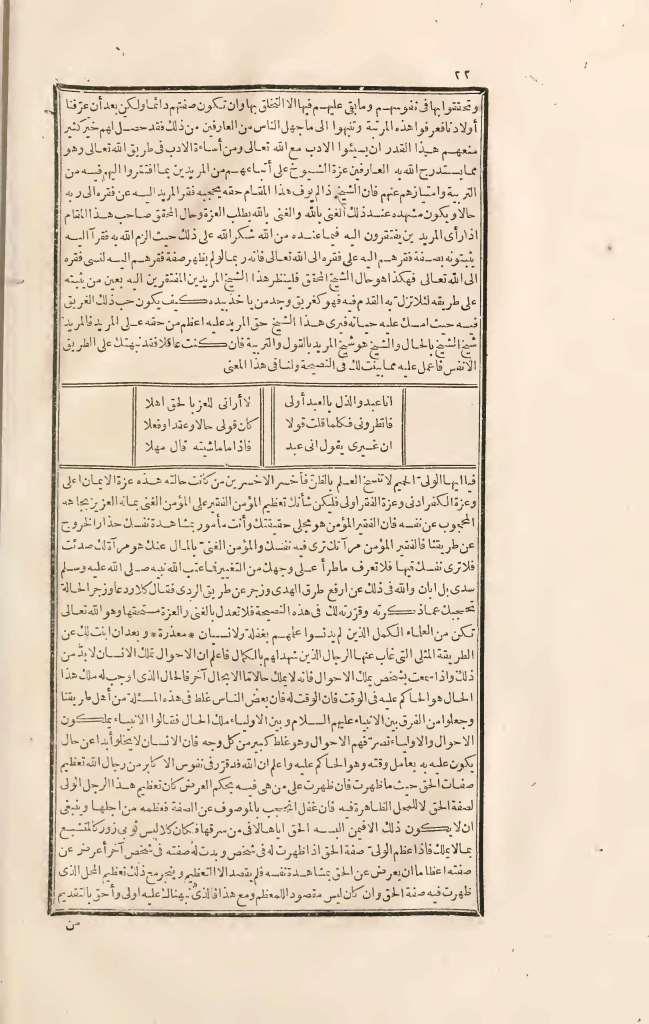 ٢٢
وتحققوا بها في نفوسهم وما بقي عليهم فيها الا التخلق بها وان تكون صفتهم دائما ولكن بعد أن عرفنا
أولادنا فعرفوا هذه المرتبة وتنبهوا الى ما جهل الناس من العارفين من ذلك فقد حصل لهم خير كثير
منعهم هذا القدر ان يسيئوا الادب مع الله تعالى ومن أساءة الادب في طريق الله تعالى وهو
مما يستدرج الله به العارفين عزة الشيوخ على أتباعهم من المريدين بما افتقروا اليهم فيه من
التربية وامتيازهم عنهم فان الشيخ اذا لم يوف هذا المقام حقه يحجبه فقر المريد اليه عن فقره الى ربه
حالا ويكون مشهده عند ذلك الغنى بالله والغنى بالله يطلب العزة وحال المحقق صاحب هذا المقام
اذا رأى المريدين يفتقرون اليه فيما عنده من الله شكر الله على ذلك حيث الزم الله به فقرآ اليه
يثبتونه بصفة فقرهم اليه على فقره الى الله تعالى فانه ربما لو لم يظهر صفة فقرهم اليه لنسى فقره
الى الله تعالى فهكذا هو حال الشيخ المحقق فلينظر هذا الشيخ المريدين المفتقرين اليه بعين من يثبته
على طريقه لئلا تزل به القدم فيه فهو كغريق وجد من يأخذ بيده كيف يكون حب ذلك الغريق
فيه حيث امسك عليه حياته فيرى هذا الشيخ حق المريد عليه اعظم من حقه على المريد فالمريد
شيخ الشيخ بالحال والشيخ هو شيخ المريد بالقول والتربية فان كنت عاقلا فقد نبهتك على الطريق
الانفس فاعمل عليه مما بينت لك في النصيحة ولنا في هذا المعنى
انا عبد والذل بالعبد أولى لا أراني للعز بالحق اهلا
فانظروني فكلما قلت قولا كان قولى حالا وعقدا وفعلا
ان غيري يقول انى عبد فاذا ما شيته قال مهلا
فيا ايها الولي الحميم لا تنسخ العلم بالظن فأخسر الاخسرين من كانت حالته هذه عزة الايمان اعلى
وعزة الكفر ادنى وعزة الفقر اولى فليكن شأنك تعظيم المؤمن الفقير على المؤمن الغنى بماله العزيز بجاهه
المحجوب عن نفسه فان الفقير المؤمن هو مجلى حقيقتك وأنت مأمور بمشاهدة نفسك حذار الخروج
عن طريقنا فالفقير المؤمن مرآتك ترى فيه نفسك والمؤمن الغنى بالمال عنك هو مرآة لك صدئت
فلا ترى نفسك فيها فلا تعرف ما طرأ على وجهك من التغيير فما عتب الله نبيه صلى الله عليه وسلم
سدى بل ابان والله في ذلك عن ارفع طرق الهدى وزجر عن طريق الردى فقال كلا ردعا وزجر الحالة
تحجبك عما ذكرته وقررته لك في هذه النصيحة فلا تعدل بالغنى والعزة مستحقها وهو الله تعالى
تكن من العلماء الكمل الذين لم يدنسوا علمهم بغفلة ولا نسيان * معذرة * وبعد ان ابنت لك عن
الطريقة المثلى التى غاب عنها الرجال الذين شهد لهم بالكمال فاعلم ان الاحوال تملك الانسان لا بد من
ذلك واذا سمعت بشخص يملك الاحوال فانه لا يملك حالا ما الا بحال آخر فالحال الذى اوجب له ملك هذا
الحال هو الحاكم عليه في الوقت فان الوقت له فان بعض الناس غلط في هذه المسئلة من أهل طريقنا
وجعلوا من الفرق بين الانبياء عليهم السلام وبين الاولياء ملك الحال فقالوا الانبياء يملكون
الاحوال والاولياء تصرفهم الاحوال وهو غلط كبير من كل وجه فان الانسان لا يخلو أبدا عن حال
يكون عليه به يعامل وقته وهو الحاكم عليه واعلم ان الله قد قرر في نفوس الاكابر من رجال الله تعظيم
صفات الحق حيث ما ظهرت فان ظهرت على من هى فيه بحكم العرض كان تعظيم هذا الرجل الولى
لصفة الحق لا للمحل الظاهرة فيه فان غفل المحجب بالموصوف عن الصفة فعظمه من اجلها وينبغى
ان لا يكون ذلك الا فيمن البسه الحق اياها لا في من سرقها فكان كلابس ثوبى زور كالمتشبع
بما لا يملك فاذا عظم الولى صفة الحق اذا ظهرت له في شخص وبدت له صفته في شخص آخر أعرض عن
صفته اعظاما ان يعرض عن الحق بمشاهدة نفسه فلم يقصد الا التعظيم وينجر مع ذلك تعظيم المحل الذى
ظهرت فيه صفة الحق وان كان ليس مقصود المعظم ومع هذا فالذى نبهناك عليه اولى وأحق بالتقديم
من